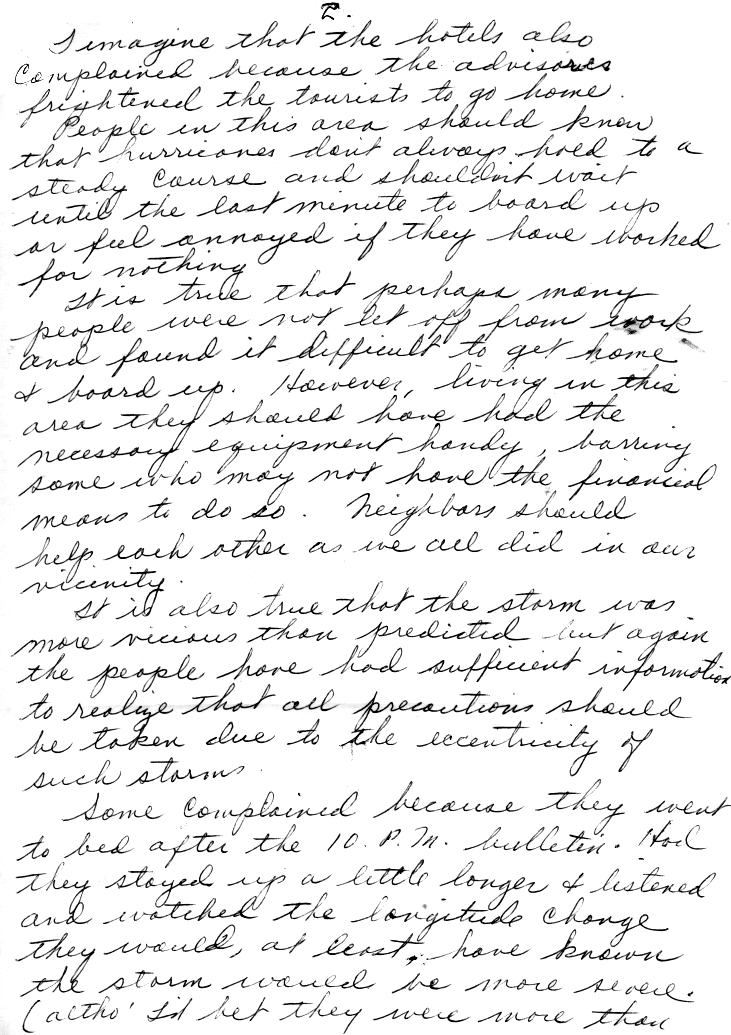 2.
I imagine that the hotels also
complained because the advisories
frightened the tourists to go home.
People in this area should know
that hurricanes don't always hold to a
steady course and shouldn't wait
until the last minute to board up
or feel annoyed if they have worked
for nothing
It is true that perhaps many
people were not let off from work
and found it difficult to get home
& board up. However, living in this
area they should have had the
necessary equipment handy, barring
some who may not have the financial
means to do so. Neighbors should
help each other as we all did in our
vicinity.
It is also true that the storm was
more vicious than predicted but again
the people have had sufficient information
to realize that all precautions should
be taken due to the eccentricity of
such storms.
Some complained because they went
to bed after the 10. P.M. bulletin. Had
they stayed up a little longer & listened
and watched the longitude change
they would, at least, have known
the storm would be more severe.
(altho' I'd bet they were more than